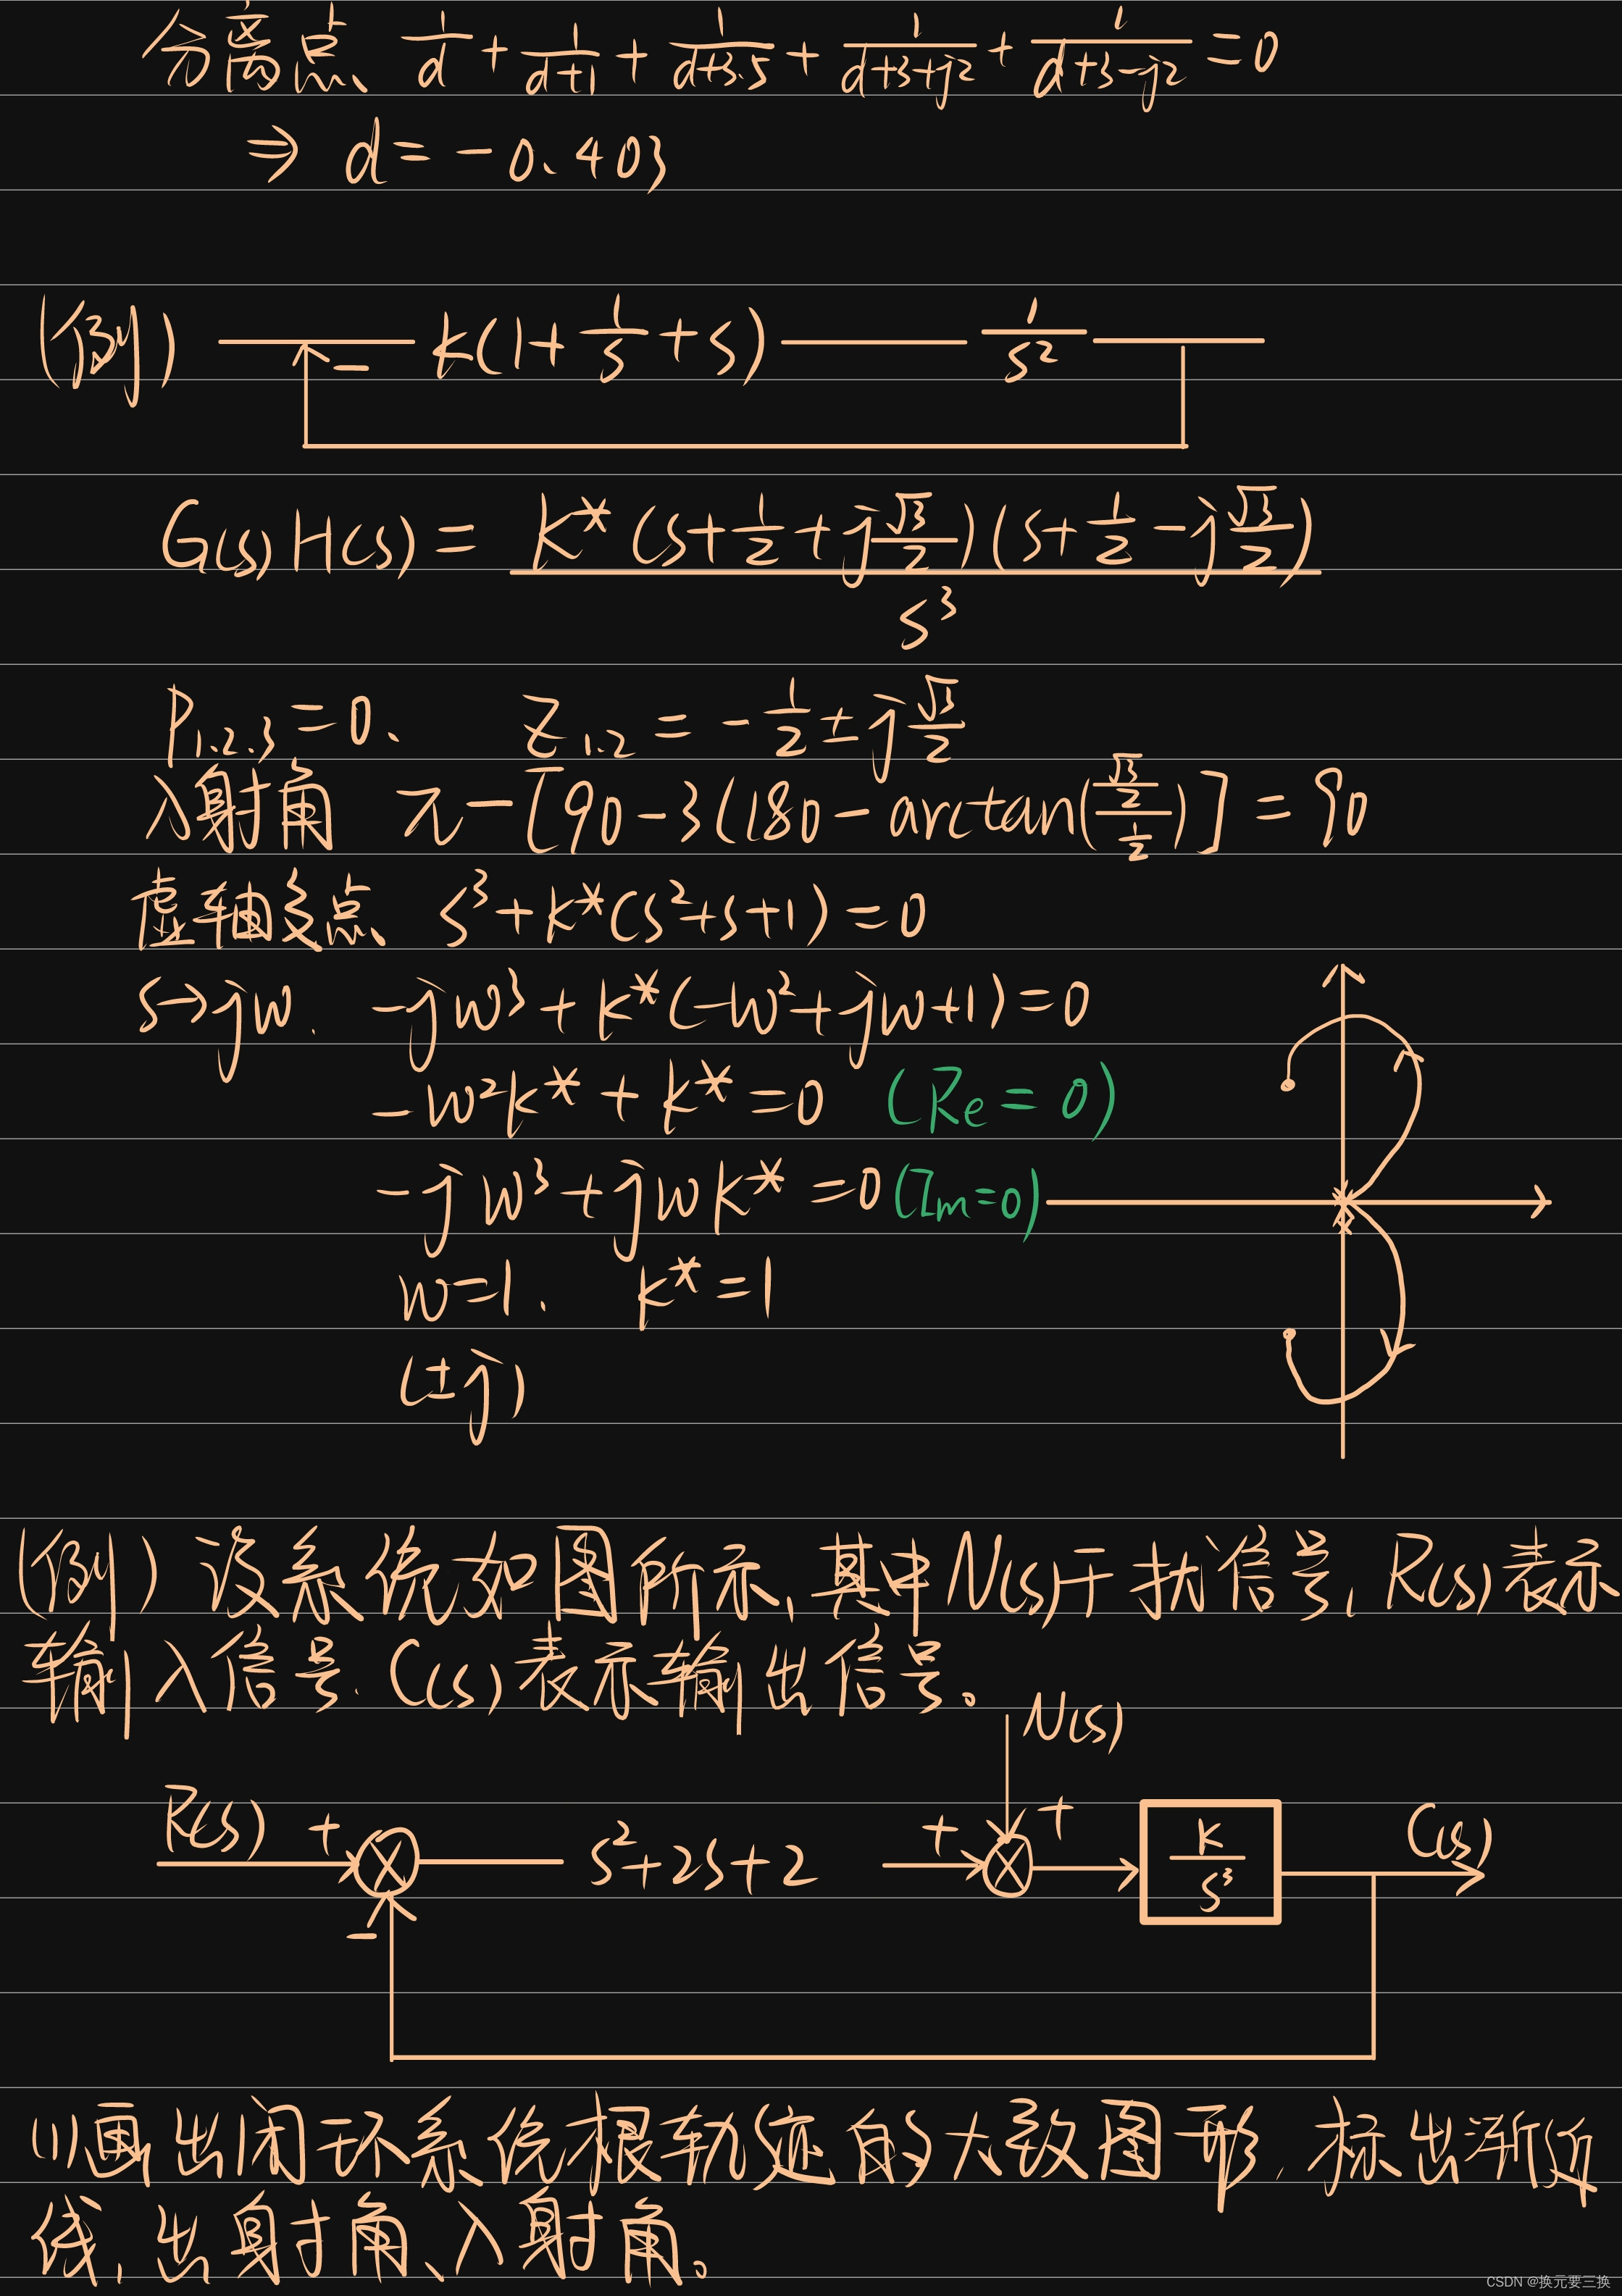 分离点 1/d + 1/(d+1) + 1/(d+3.5) + 1/(d+3+j2) + 1/(d+3-j2) = 0
⇒ d = -0.403
(例) - k(1+1/s+s) 1/s²
G(s)H(s) = K*(s+1/2+j√3/2)(s+1/2-j√3/2) / s³
P₁.₂.₃=0、 Z₁.₂ = -1/2 ± j√3/2
入射角 π-[90-3(180-arctan((√3/2)/(1/2))] = 90
虚轴交点 s³+k*(s²+s+1)=0
s→jw. -jw³+k*(-w²+jw+1)=0
-w²k*+k*=0 (Re=0)
-jw³+jwk*=0 (Im=0)
w=1. k*=1
(±j)
(例) 设系统如图所示,其中N(s)干扰信号,R(s)表示
输入信号.C(s)表示输出信号。
N(s)
R(s) + - s²+2s+2 + + k/s³ C(s)
(1)画出闭环系统根轨迹的大致图形,标出渐近
线,出射角、入射角。
CSDN @换元要三换